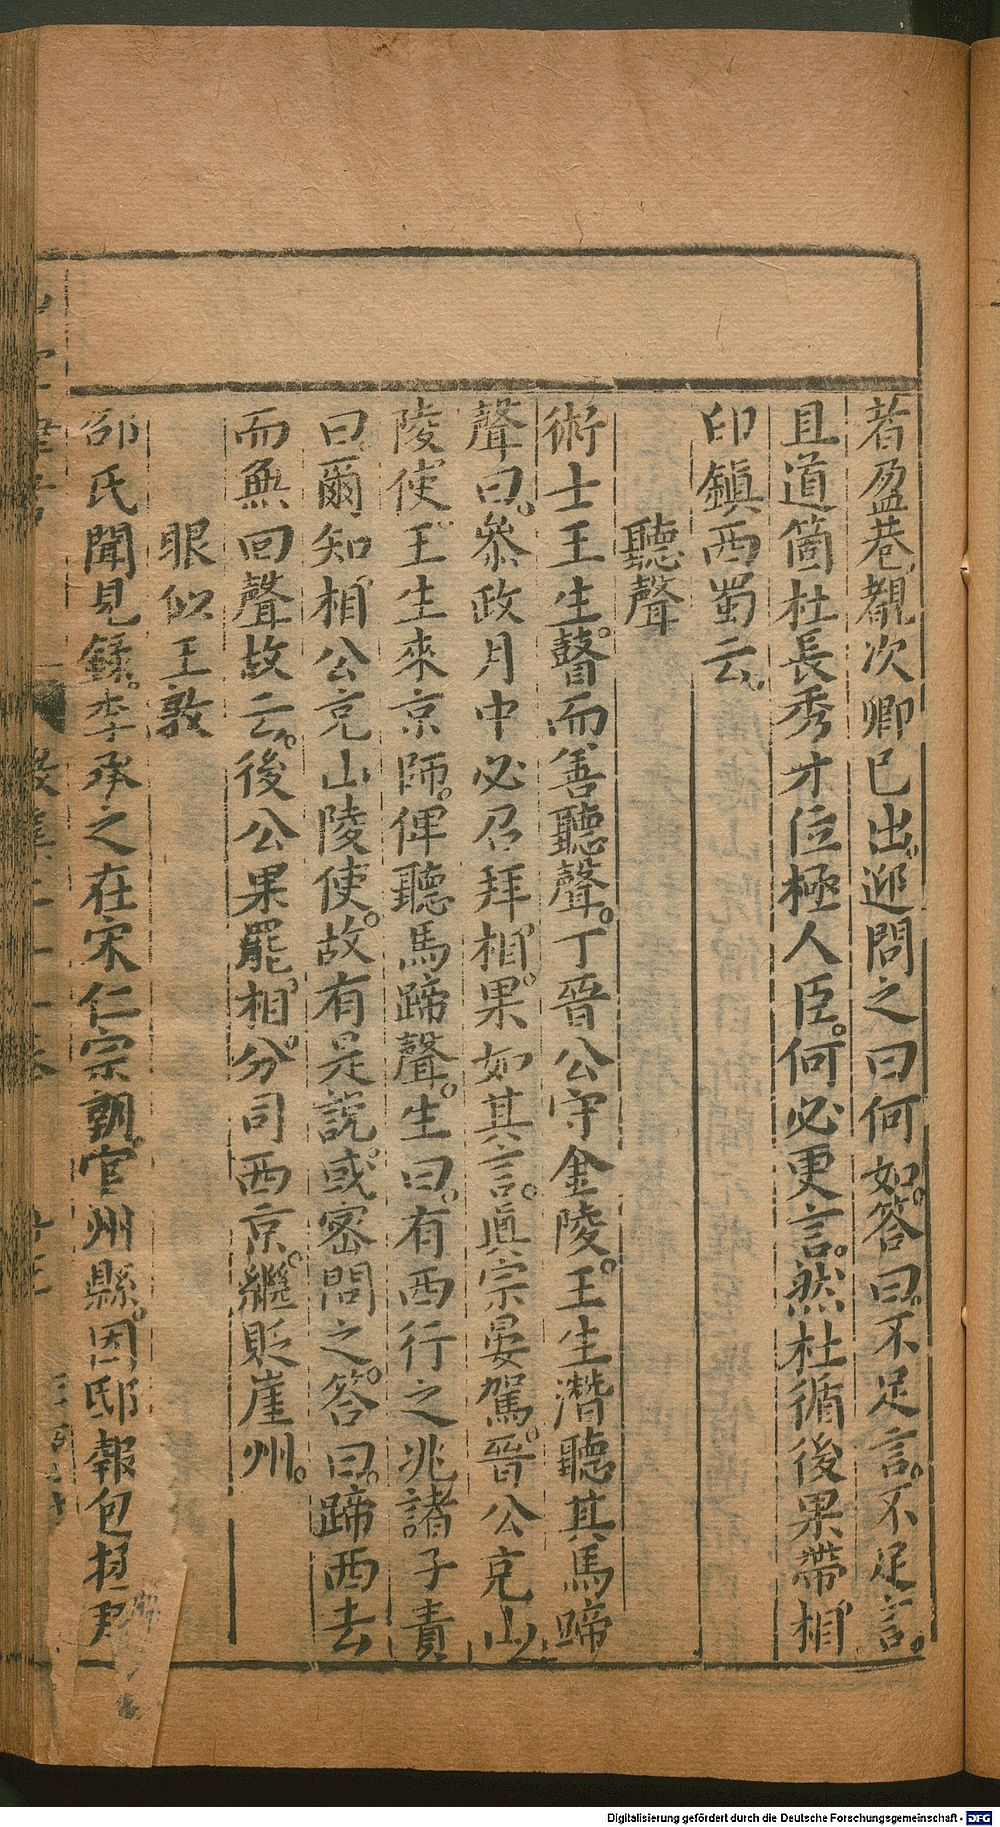 者盈巷覩次卿已出迎問之曰何如答曰不足言不足言
且道箇杜長秀才位極人臣何必更言然杜循後果帶相
印鎮西蜀云
聽聲
術士王生瞽而善聽聲丁晉公守金陵王生潛聽其馬蹄
聲曰叅政月中必召拜相果如其言真宗晏駕晉公充山
陵使王生來京師俾聽馬蹄聲生曰有西行之兆諸子責
曰爾知相公充山陵使故有是說或密問之答曰蹄西去
而無回聲故云後公果罷相分司西京繼貶崖州
眼似王敦
邵氏聞見錄李承之在宋仁宗朝官州縣因邸報包拯
Digitalisierung gefördert durch die Deutsche Forschungsgemeinschaft - DFG